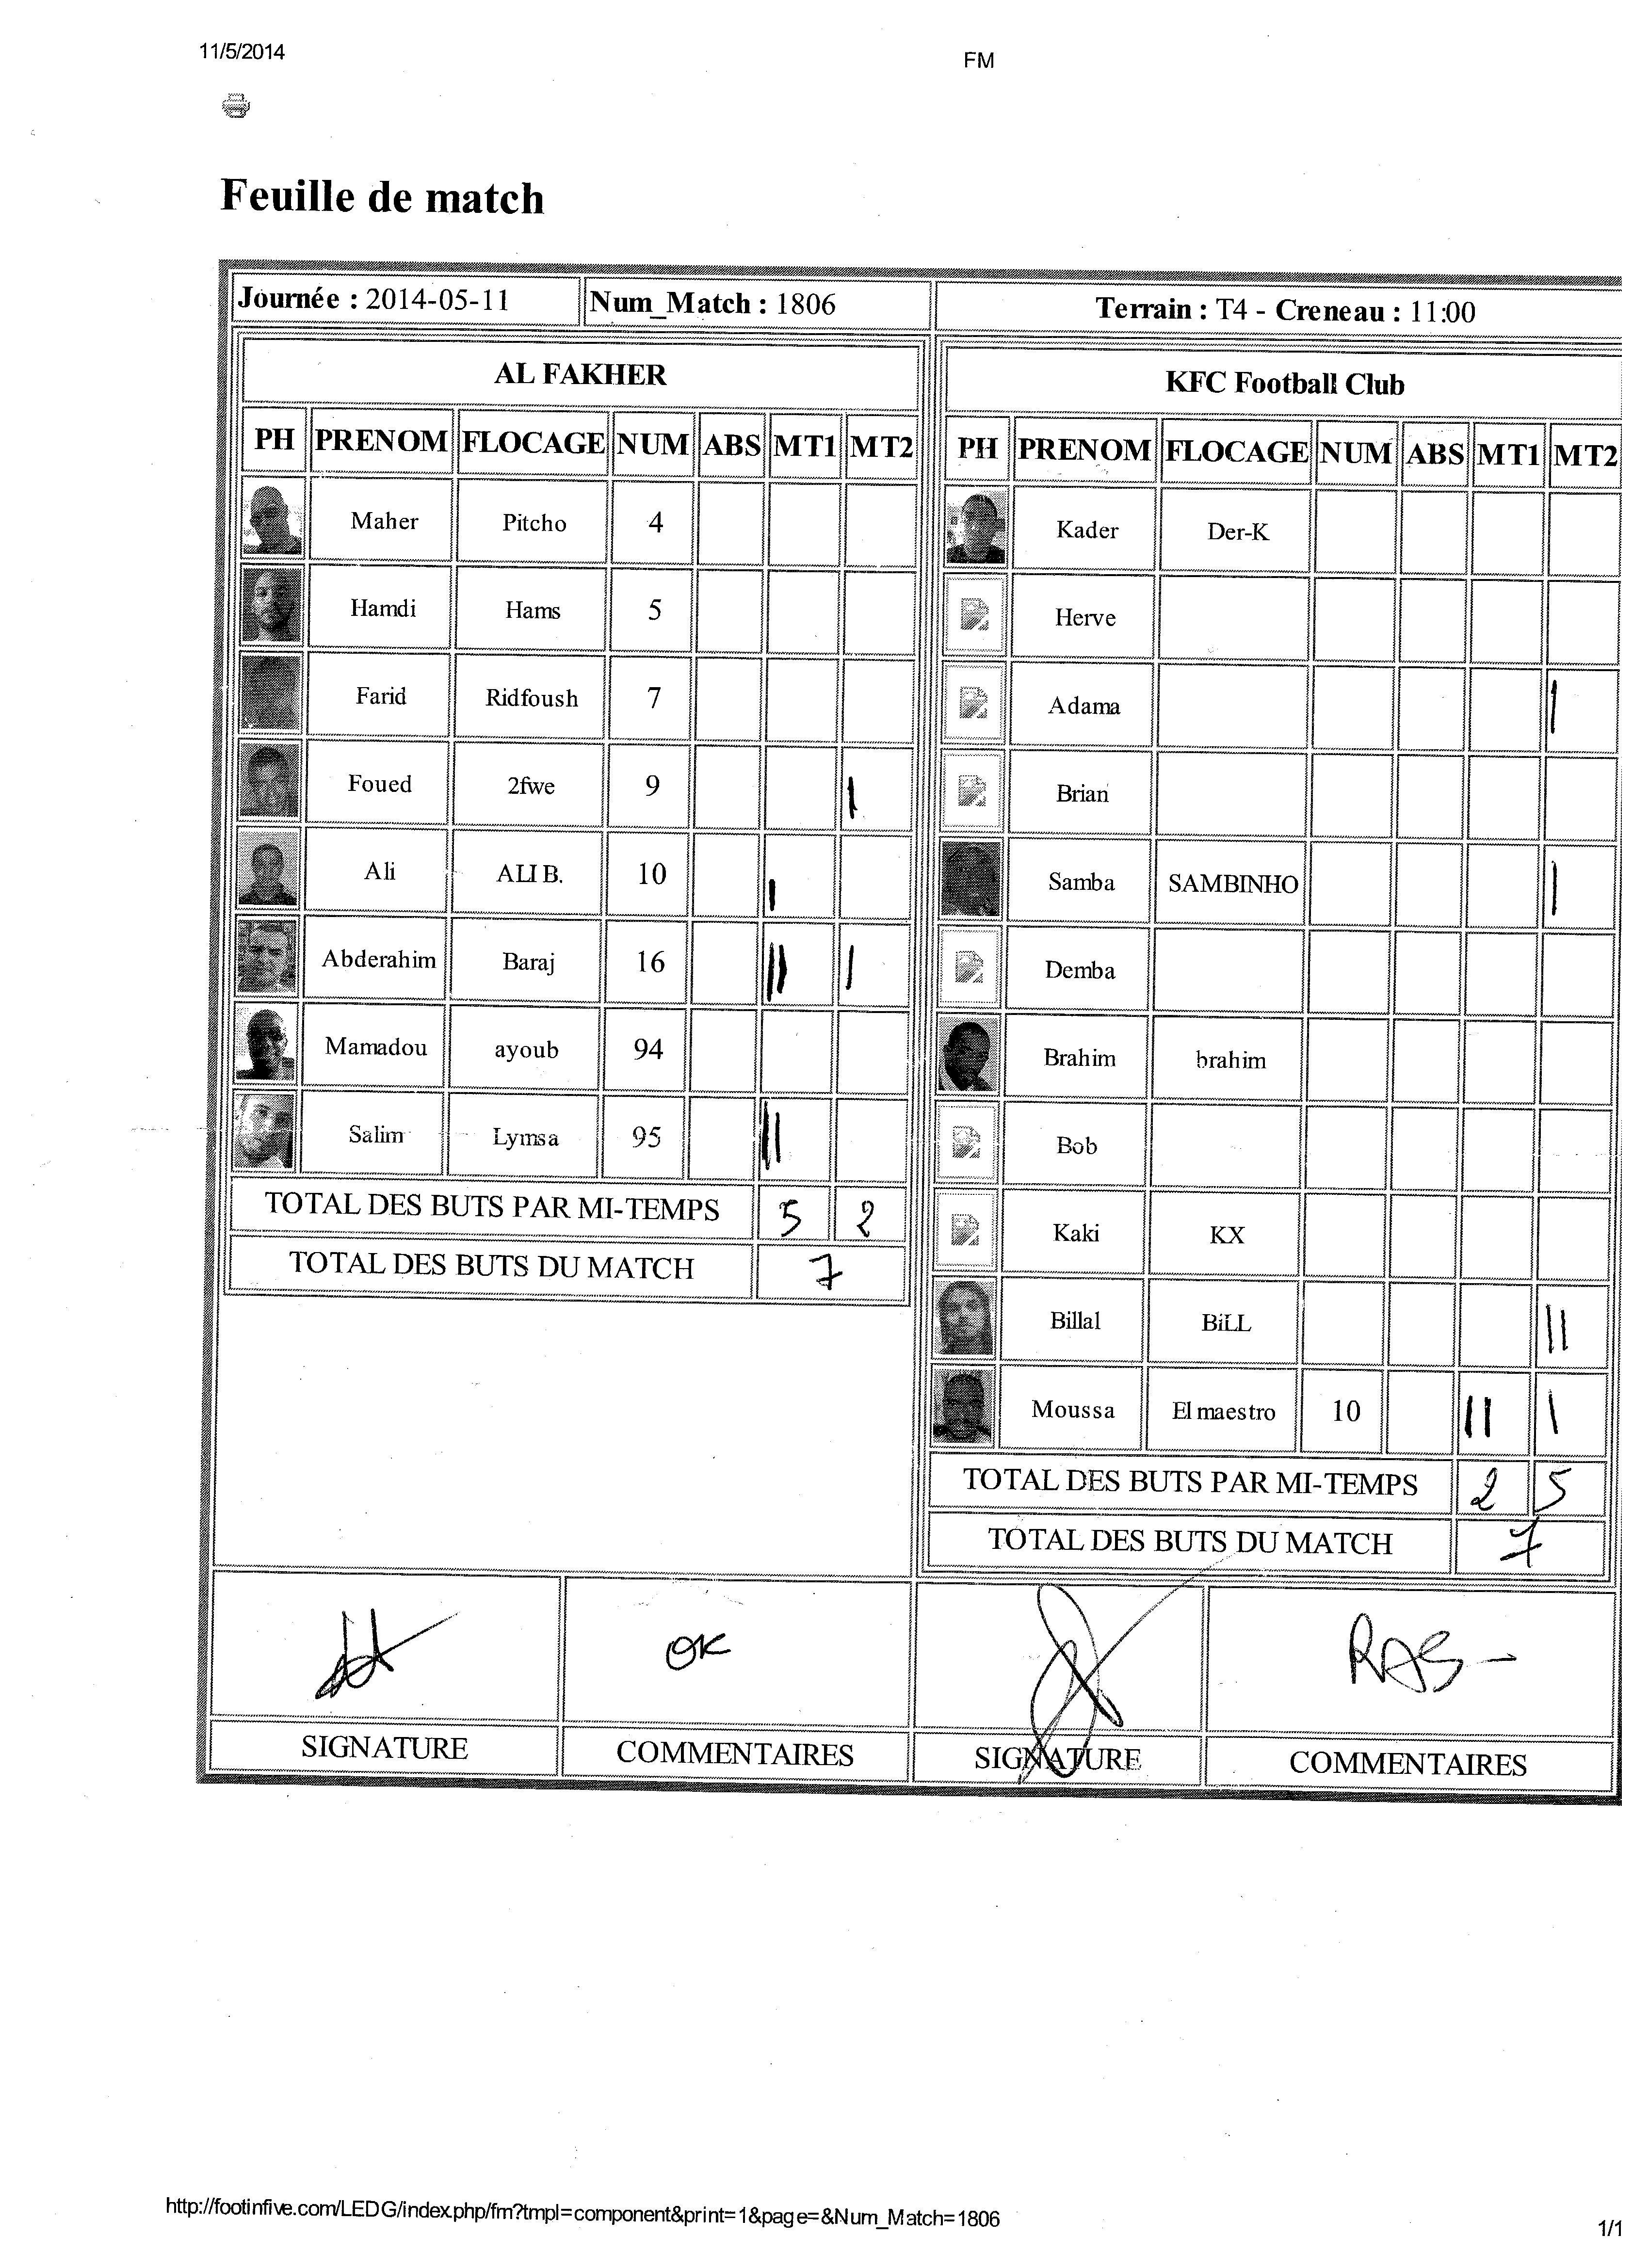 11/5/2014
FM
Feuille de match
Journée : 2014-05-11 Num_Match : 1806 Terrain : T4 - Creneau : 11:00
AL FAKHER
PH PRENOM FLOCAGE NUM ABS MT1 MT2
Maher Pitcho 4
Hamdi Hams 5
Farid Ridfoush 7
Foued 2fwe 9 |
Ali ALI B. 10 |
Abderahim Baraj 16 || |
Mamadou ayoub 94
Salim Lymsa 95 ||
TOTAL DES BUTS PAR MI-TEMPS 5 2
TOTAL DES BUTS DU MATCH 7
KFC Football Club
PH PRENOM FLOCAGE NUM ABS MT1 MT2
Kader Der-K
Herve
Adama |
Brian
Samba SAMBINHO |
Demba
Brahim brahim
Bob
Kaki KX
Billal BiLL ||
Moussa El maestro 10 || |
TOTAL DES BUTS PAR MI-TEMPS 2 5
TOTAL DES BUTS DU MATCH 7
OK
RAS -
SIGNATURE COMMENTAIRES SIGNATURE COMMENTAIRES
http://footinfive.com/LEDG/index.php/fm?tmpl=component&print=1&page=&Num_Match=1806
1/1